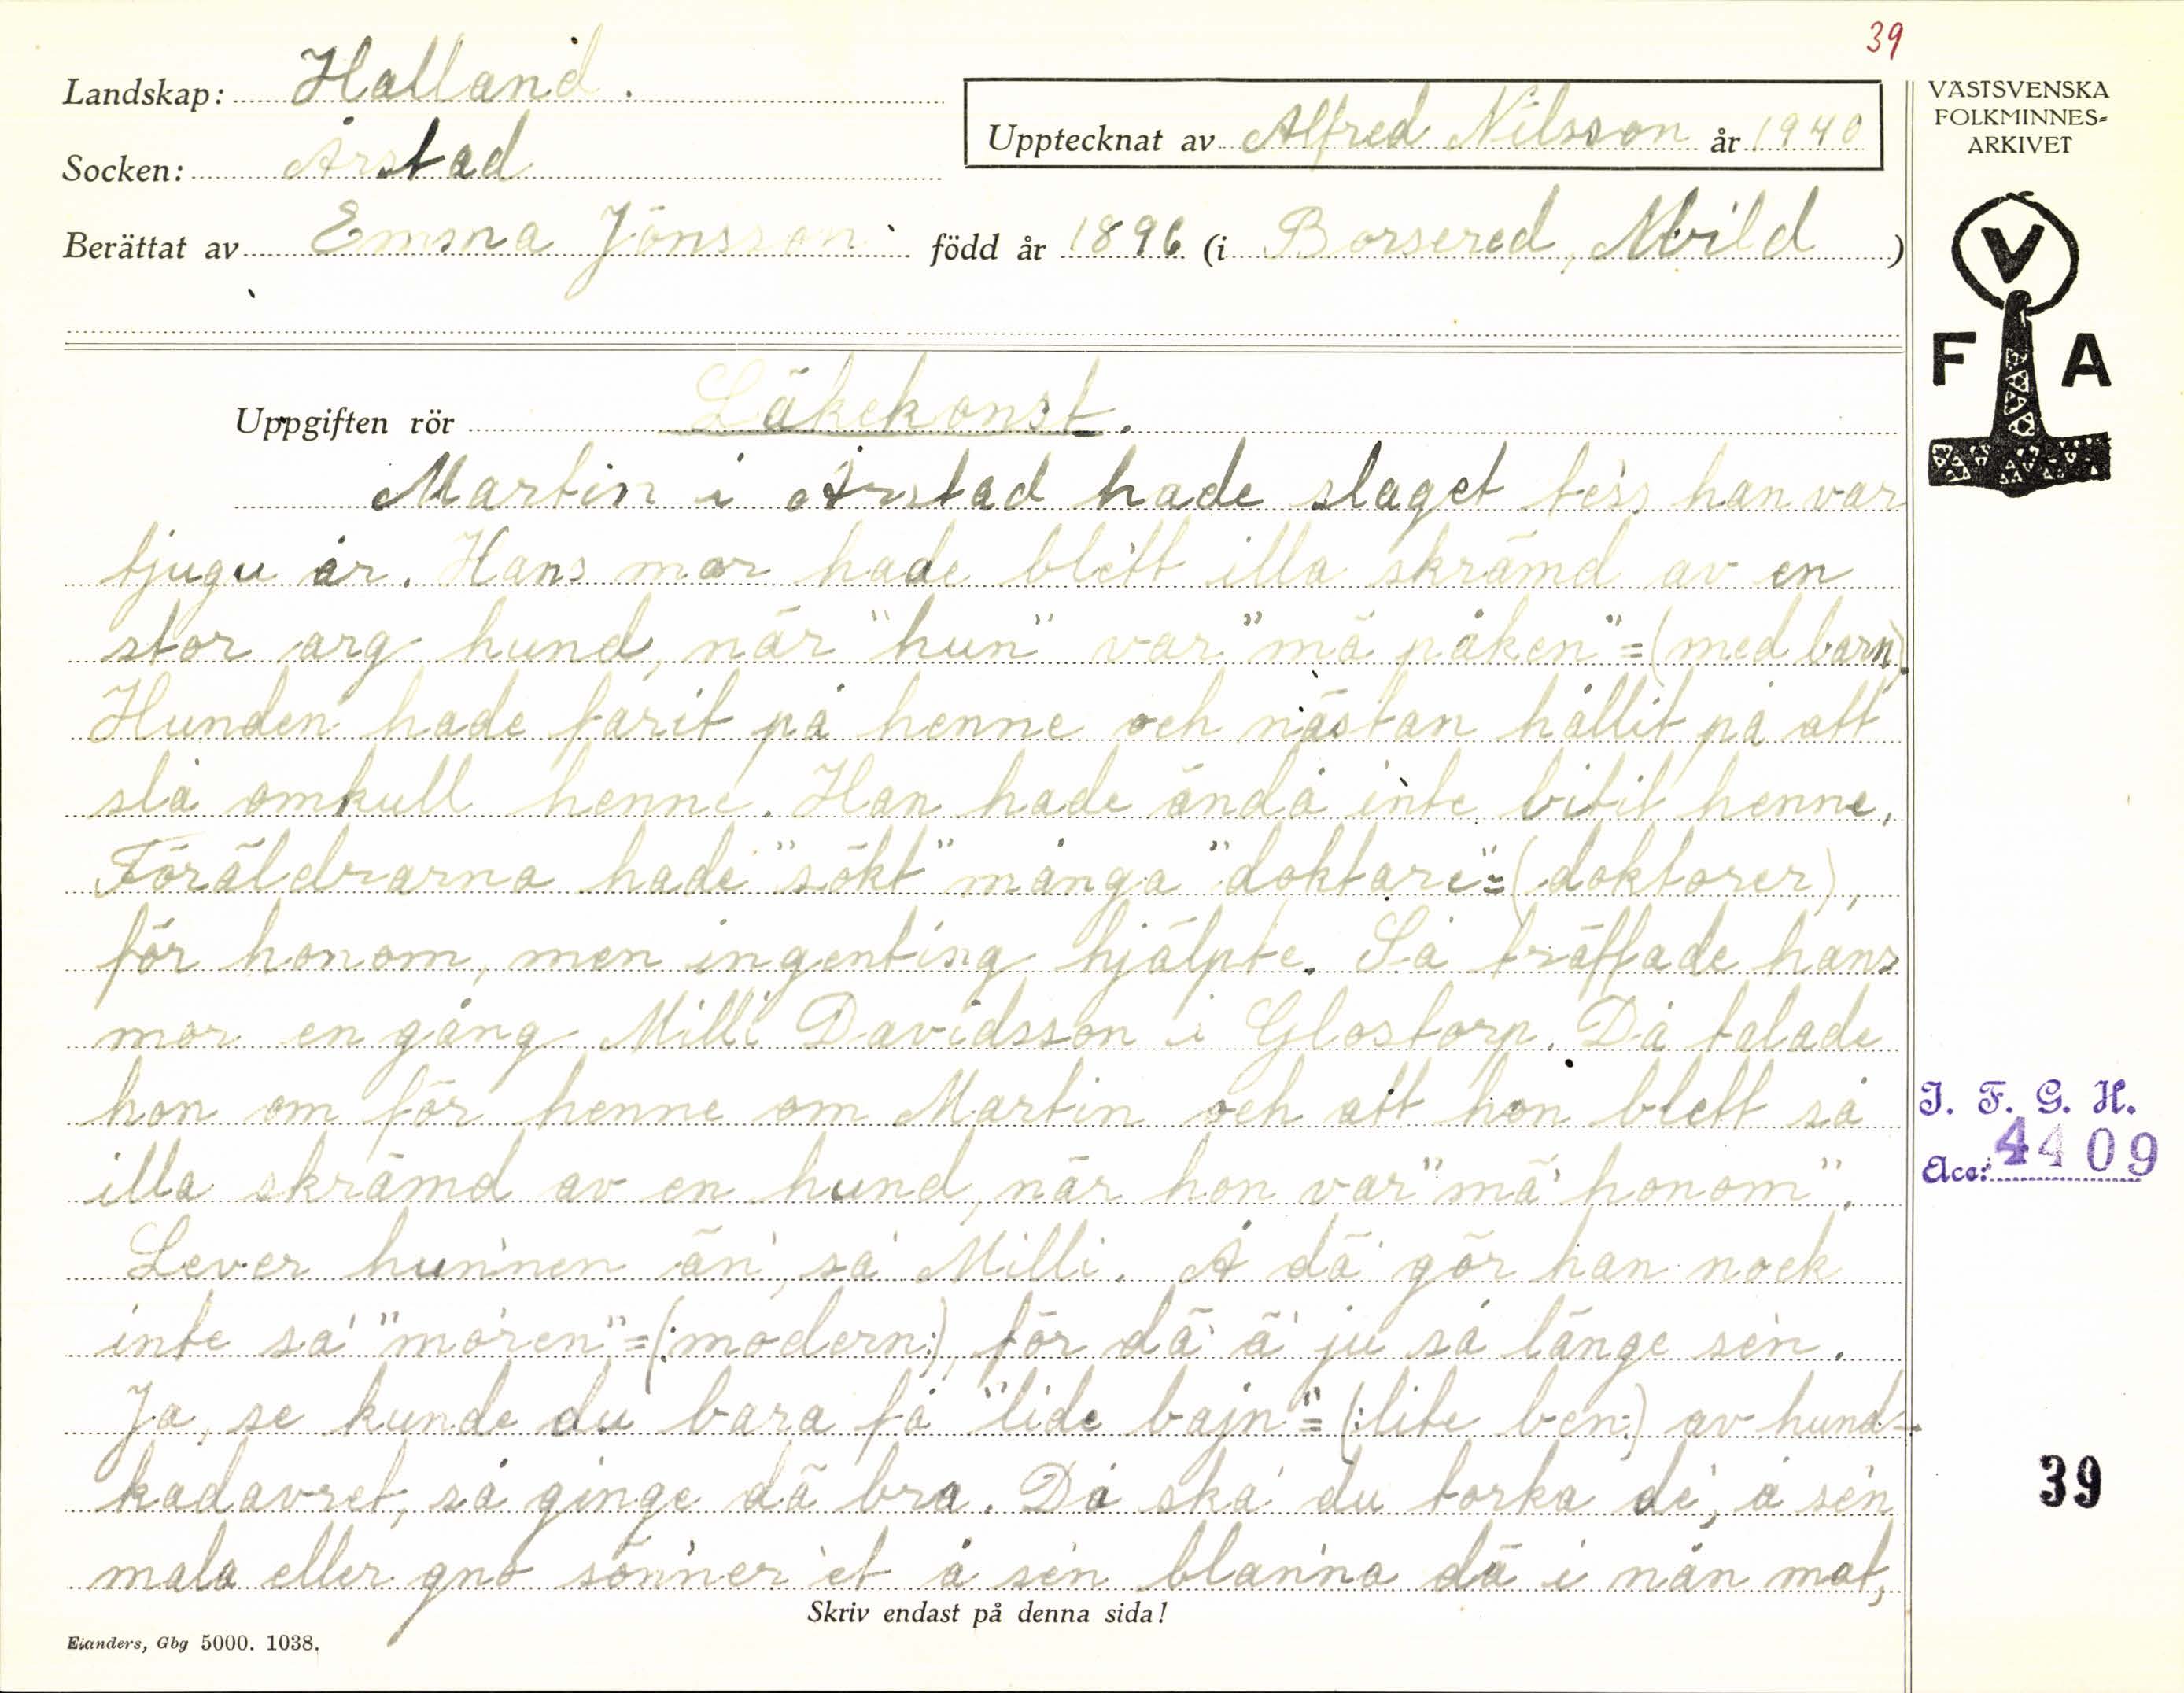 39
Landskap: Halland.
Upptecknat av Alfred Nilsson år 1940
VÄSTSVENSKA
FOLKMINNES-
ARKIVET
Socken: Årstad
Berättat av Emma Jönsson född år 1896 (i Borsered, Abild)
V
F A
Uppgiften rör Läkekonst.
Martin i Årstad hade slaget tess han var
tjugu år. Hans mor hade blett illa skrämd av en
stor arg hund, när "hun" var "mä påken" = (med barn).
Hunden hade farit på henne och nästan hållit på att
slå omkull henne. Han hade ändå inte bitit henne.
Föräldrarna hade "sökt" många "doktare" = (doktorer),
för honom, men ingenting hjälpte. Så träffade hans
mor en gång Milli Davidsson i Glostorp. Då talade
hon om för henne om Martin och att hon blett så
illa skrämd av en hund, när hon var "mä honom".
Lever hun'nen än', sa' Milli. Å dä' gör han nock
inte sa' "mo'ren" = (:modern:), för dä' ä' ju så länge se'n.
Ja, se kunde du bara få "lide bajn" = (:lite ben:) av hund-
kadavret, så ginge dä bra. Då ska' du torka de', å se'n
mala eller gno sön'ner 'et å se'n blan'na dä i nån mat,
Skriv endast på denna sida!
Elanders, Gbg 5000. 1038.
I. F. G. H.
Acc: 4409
39